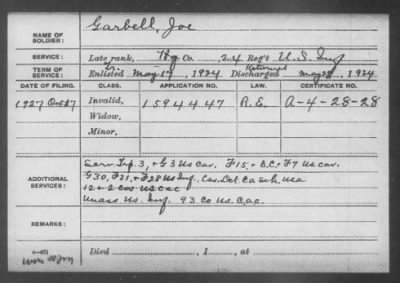 NAME OF SOLDIER: Garbell, Joe
SERVICE: Late rank, Hq Co. 24 Reg't U.S. Inf
TERM OF SERVICE: Enlisted May 17, 1924 Retired Discharged May, 1924
DATE OF FILING. CLASS. APPLICATION NO. LAW. CERTIFICATE NO.
1927 Oct 17 Invalid, 1594447 R.E. A-4-28-28
Widow,
Minor,
ADDITIONAL SERVICES: Serv Trp. 3, + G 3 US cav. F15, + B.C. + F9 US cav.
G30, F21, + F28 US Inf, Cav. Det Ca Sch. USA
12 + 2 cos US CAC
Unass US. Inf. 93 Co US CAC.
REMARKS:
Died , 1 , at